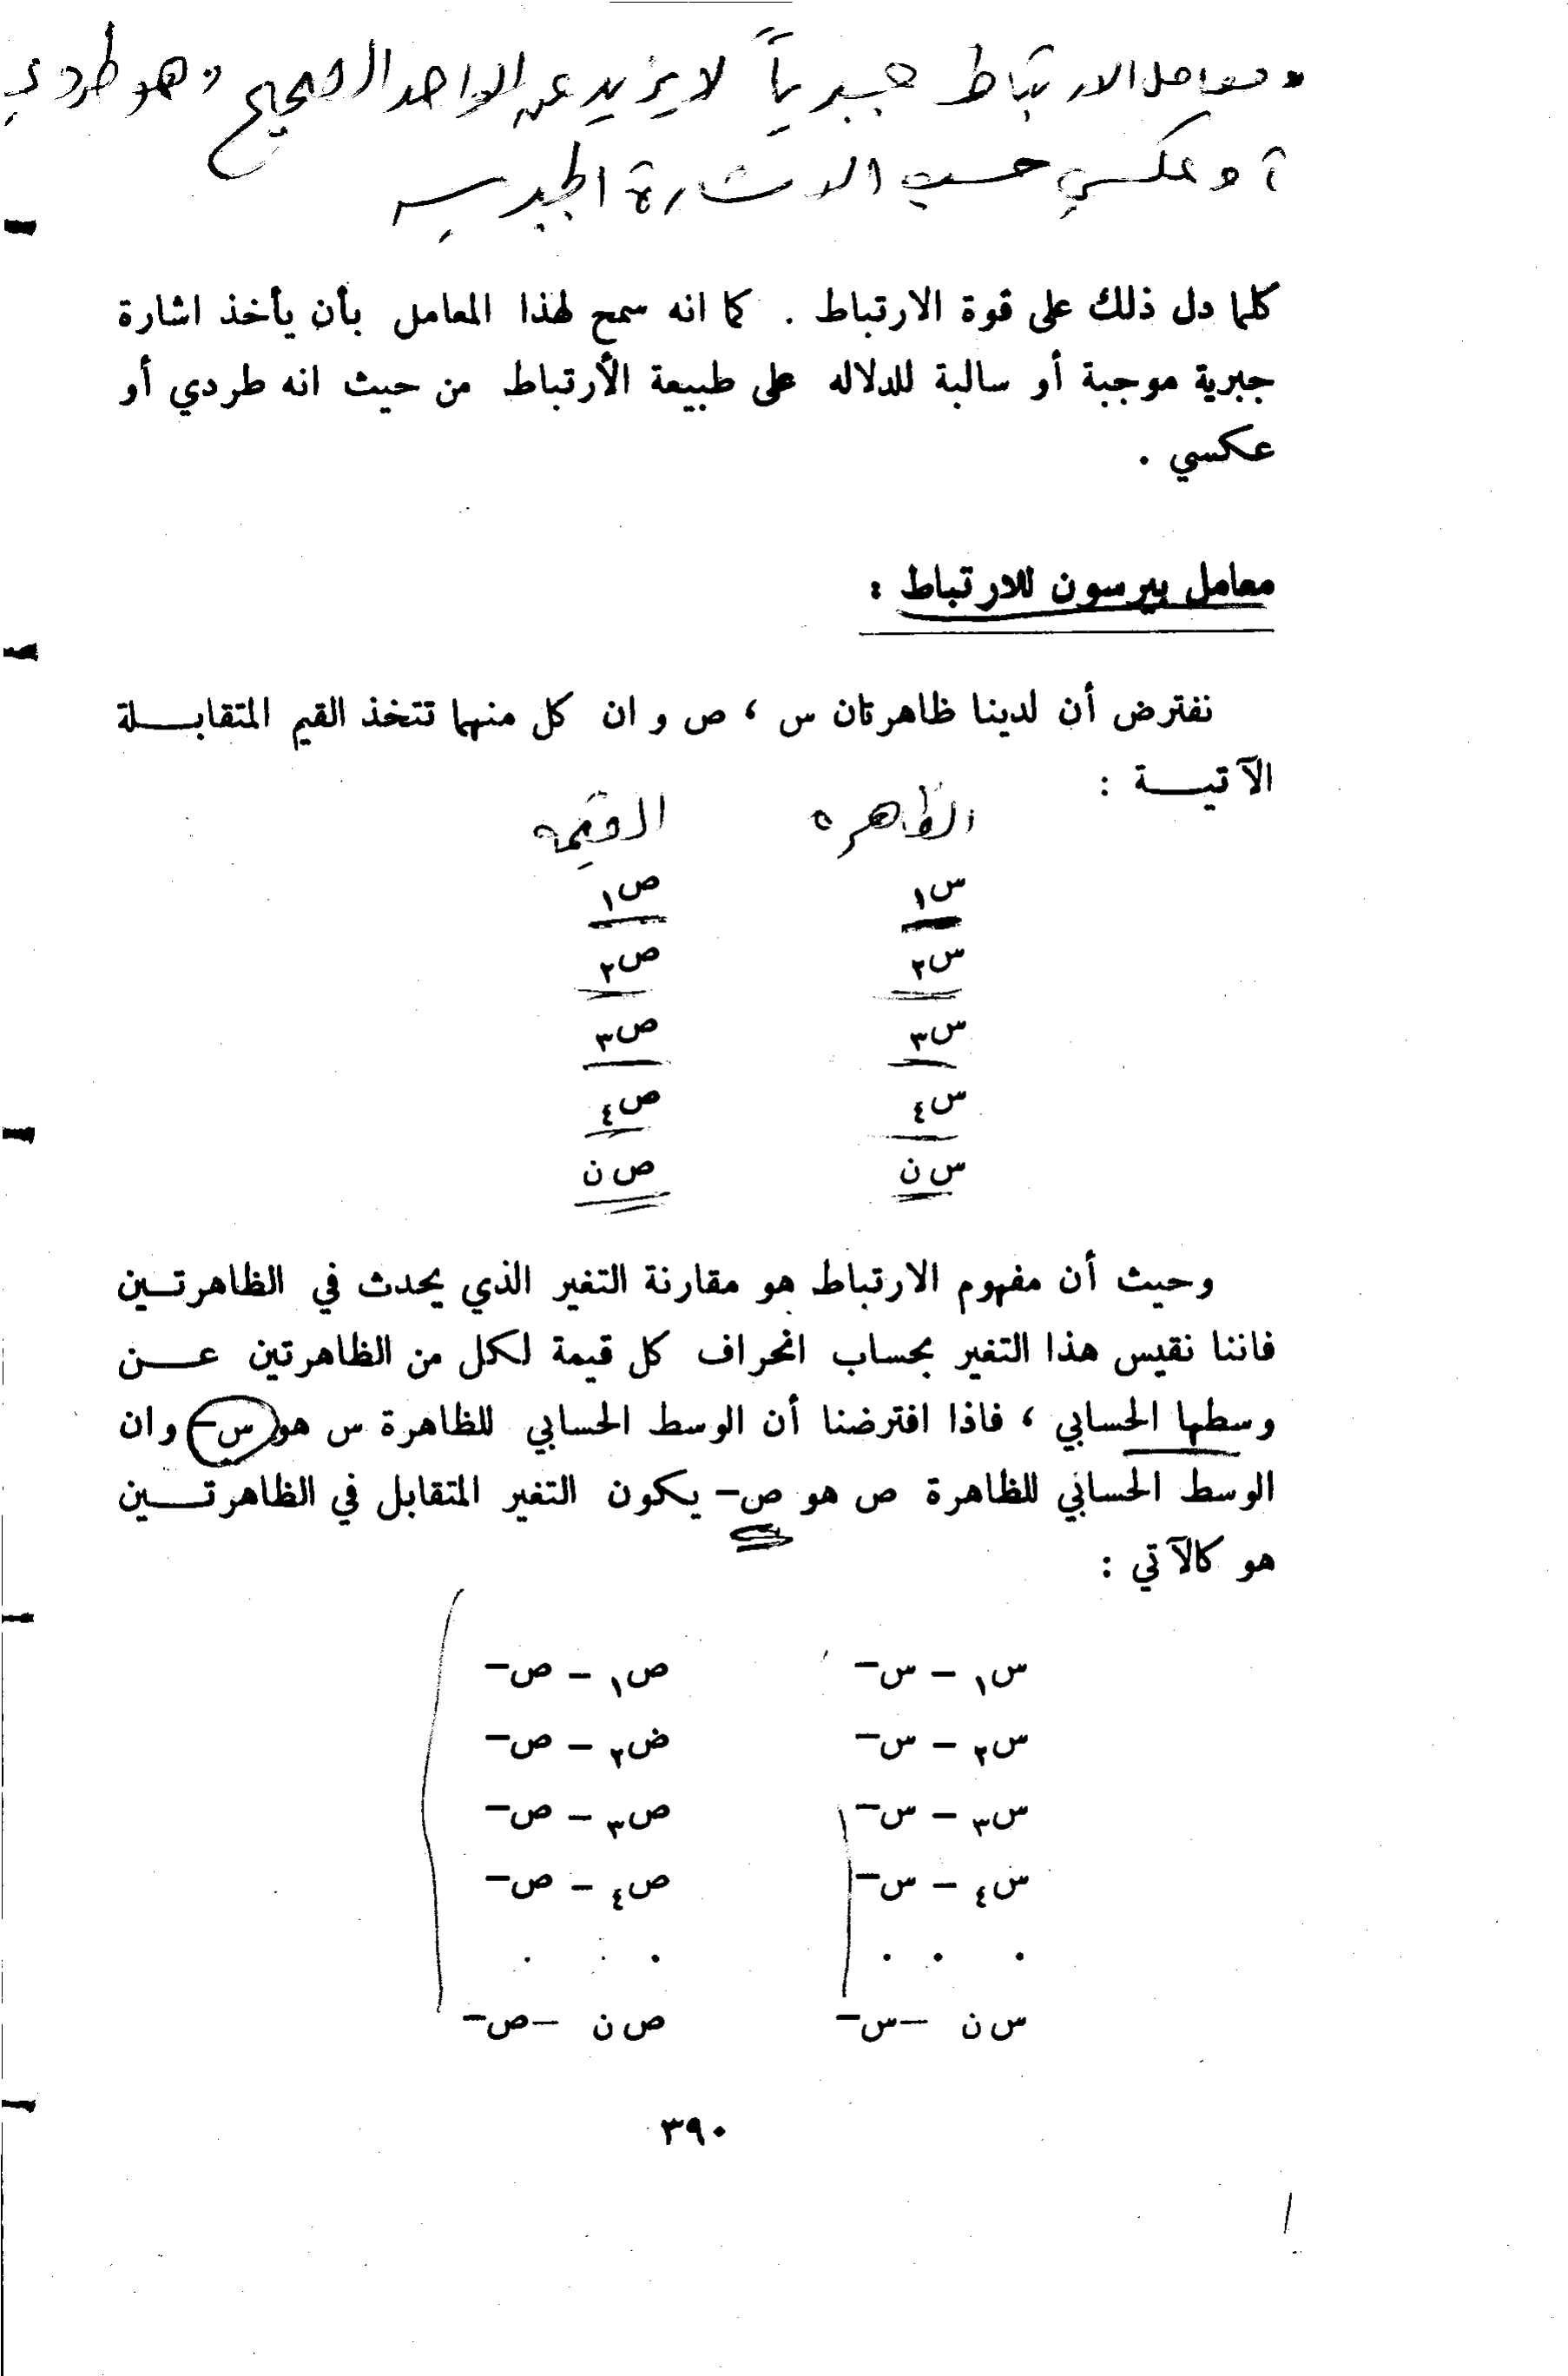 معامل الارتباط جبرياً لا يزيد عن الواحد الصحيح وهو طردي
أو عكسي حسب الاشارة الجبريه
كلما دل ذلك على قوة الارتباط . كما انه سمح لهذا المعامل بأن يأخذ اشارة
جبرية موجبة أو سالبة للدلاله على طبيعة الأرتباط من حيث انه طردي أو
عكسي .
معامل بيرسون للارتباط :
نفترض أن لدينا ظاهرتان س ، ص و ان كل منهما تتخذ القيم المتقابلة
الآتية :
الظاهره القيمه
س١ ص١
س٢ ص٢
س٣ ص٣
س٤ ص٤
س ن ص ن
وحيث أن مفهوم الارتباط هو مقارنة التغير الذي يحدث في الظاهرتين
فاننا نقيس هذا التغير بحساب انحراف كل قيمة لكل من الظاهرتين عن
وسطها الحسابي ، فاذا افترضنا أن الوسط الحسابي للظاهرة س هو س– وان
الوسط الحسابي للظاهرة ص هو ص– يكون التغير المتقابل في الظاهرتين
هو كالآتي :
س١ – س– ص١ – ص–
س٢ – س– ض٢ – ص–
س٣ – س– ص٣ – ص–
س٤ – س– ص٤ – ص–
. . . . . .
س ن – س– ص ن – ص–
٣٩٠